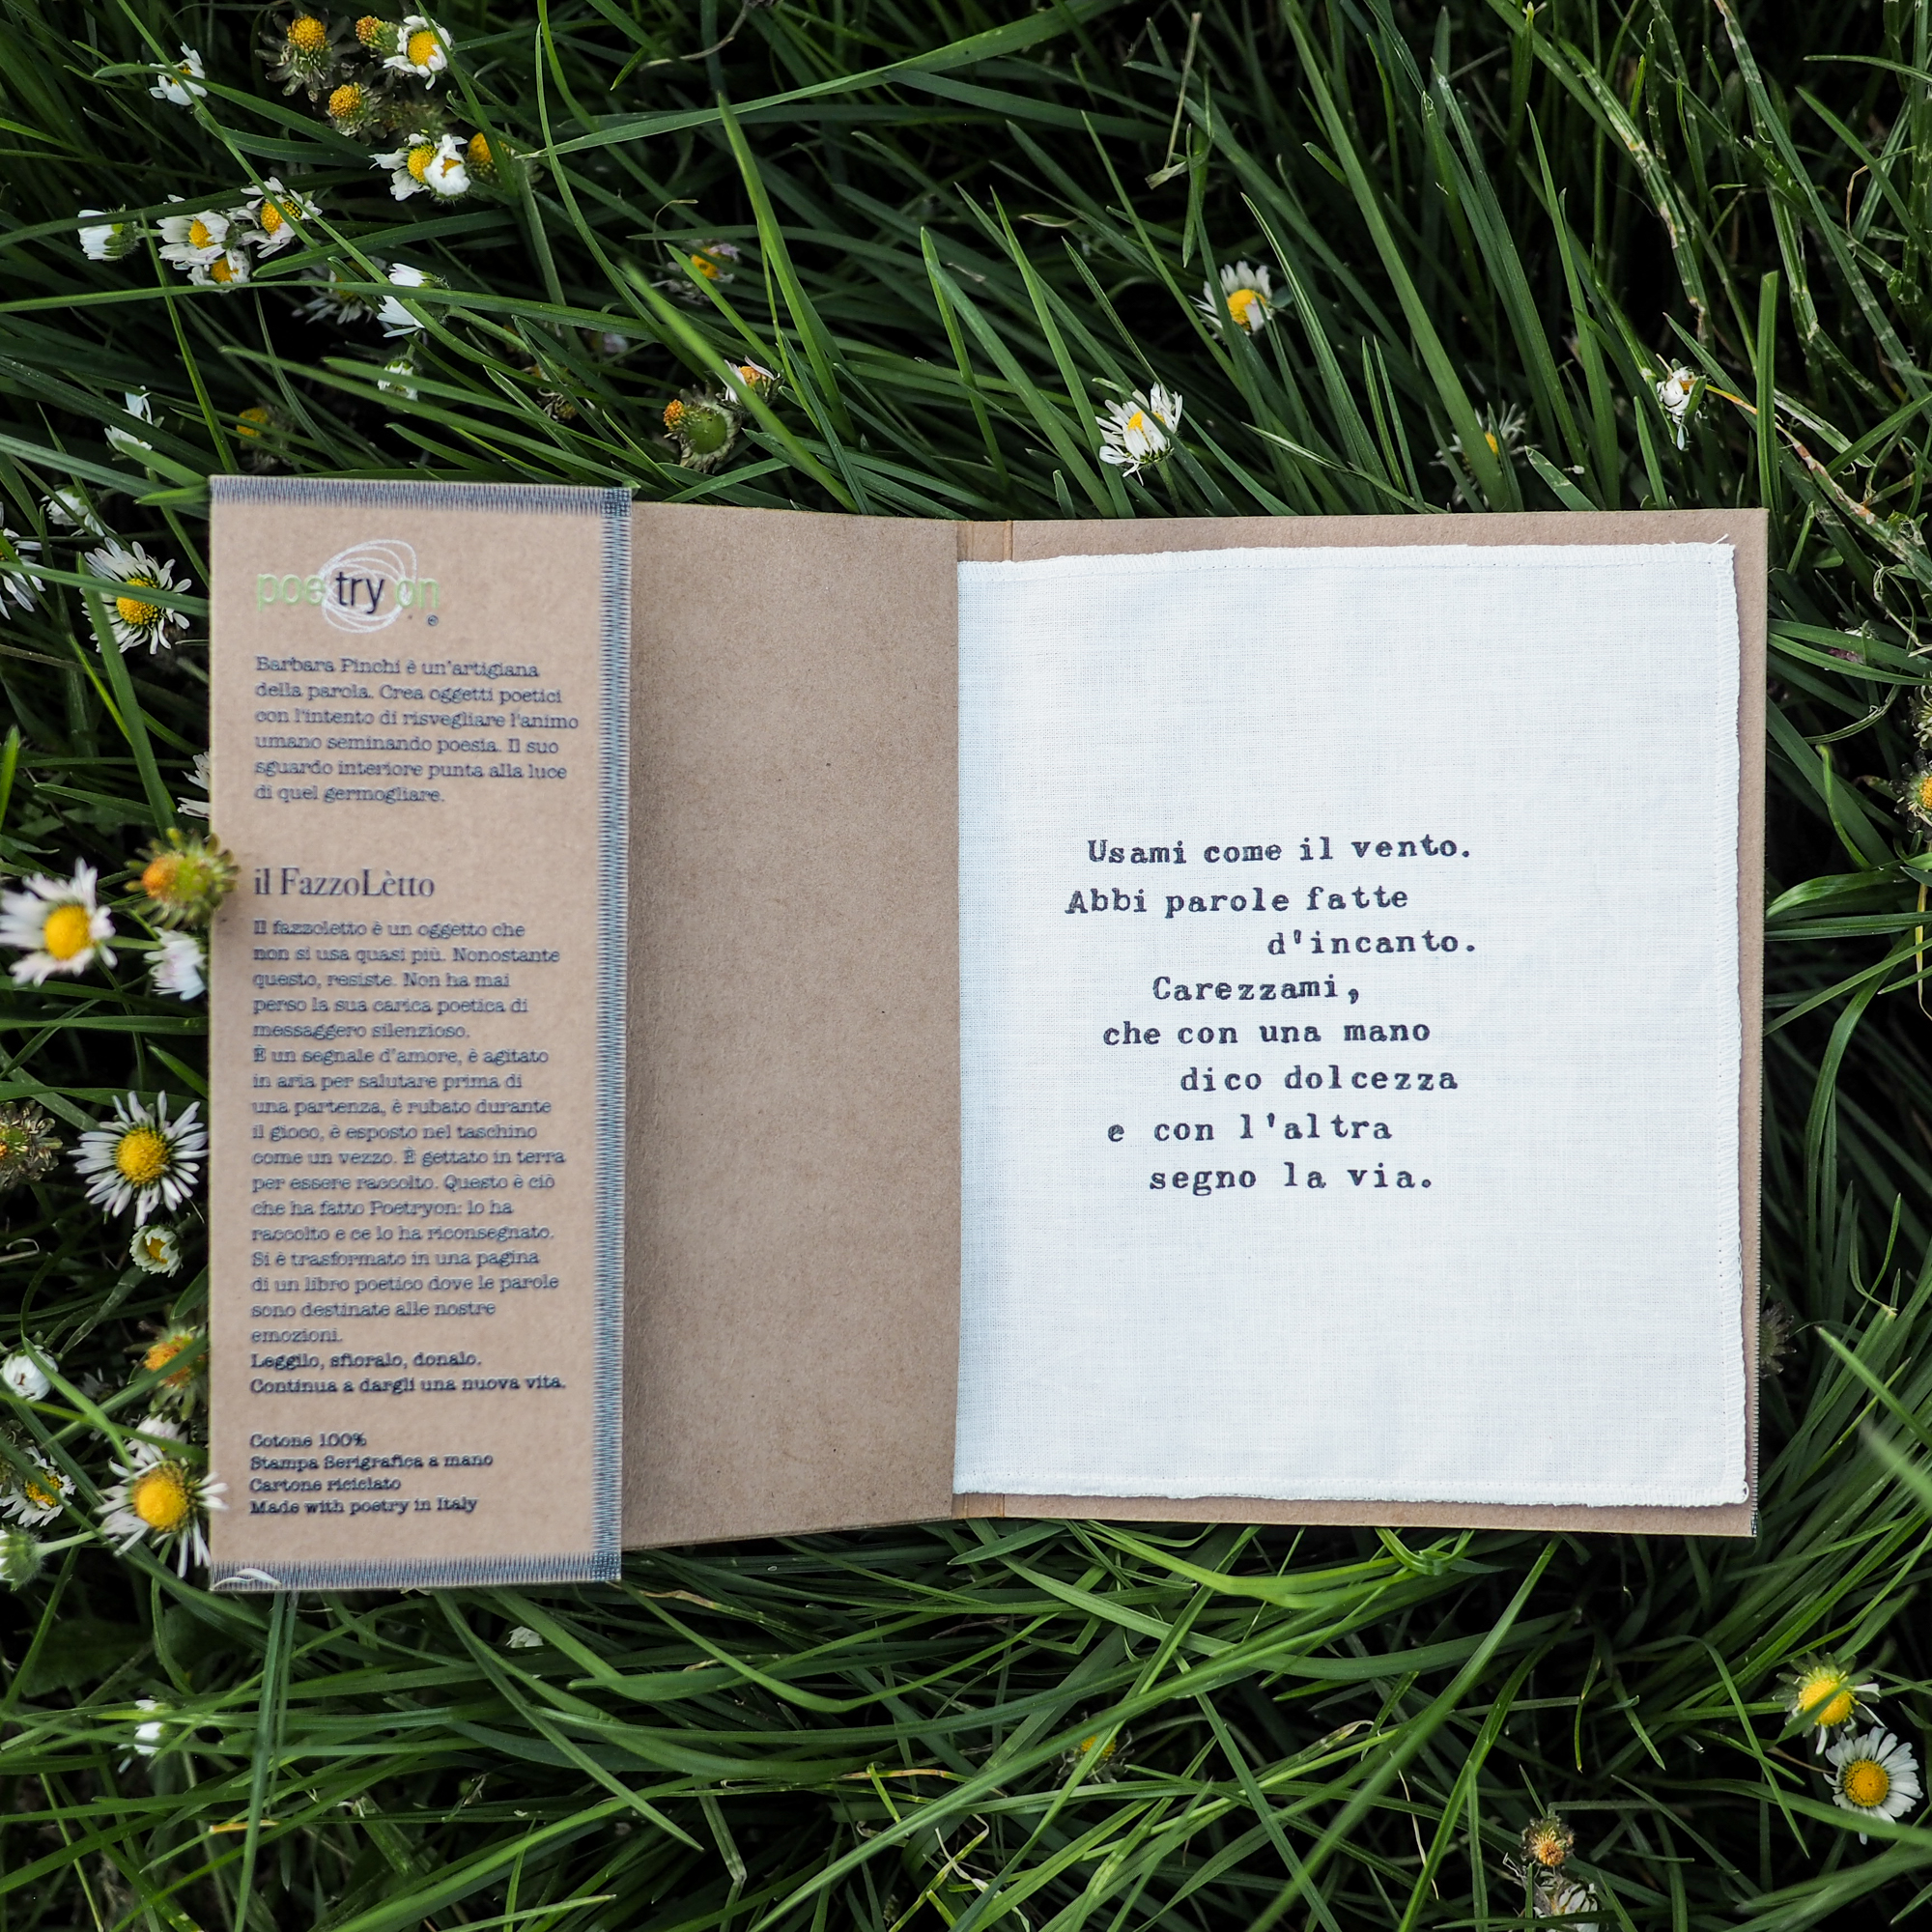 poetryon
Barbara Pinchi è un'artigiana
della parola. Crea oggetti poetici
con l'intento di risvegliare l'animo
umano seminando poesia. Il suo
sguardo interiore punta alla luce
di quel germogliare.
il FazzoLètto
Il fazzoletto è un oggetto che
non si usa quasi più. Nonostante
questo, resiste. Non ha mai
perso la sua carica poetica di
messaggero silenzioso.
È un segnale d'amore, è agitato
in aria per salutare prima di
una partenza, è rubato durante
il gioco, è esposto nel taschino
come un vezzo. È gettato in terra
per essere raccolto. Questo è ciò
che ha fatto Poetryon: lo ha
raccolto e ce lo ha riconsegnato.
Si è trasformato in una pagina
di un libro poetico dove le parole
sono destinate alle nostre
emozioni.
Leggilo, sfioralo, donalo.
Continua a dargli una nuova vita.
Cotone 100%
Stampa Serigrafica a mano
Cartone riciclato
Made with poetry in Italy
Usami come il vento.
Abbi parole fatte
d'incanto.
Carezzami,
che con una mano
dico dolcezza
e con l'altra
segno la via.